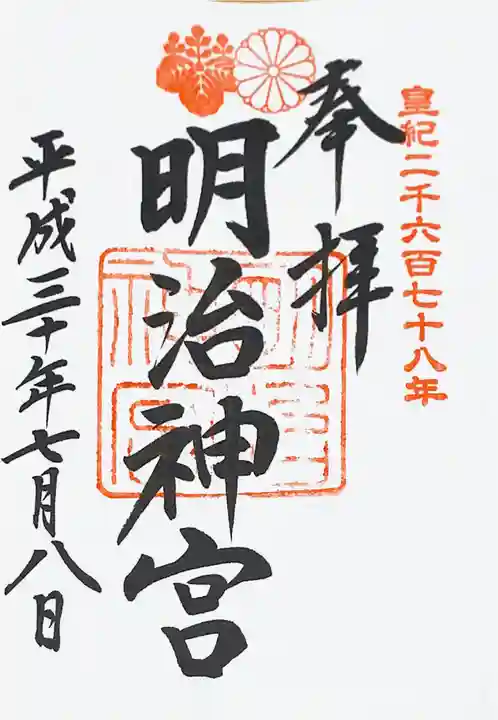 皇紀二千六百七十八年
奉拝
明治神宮
平成三十年七月八日